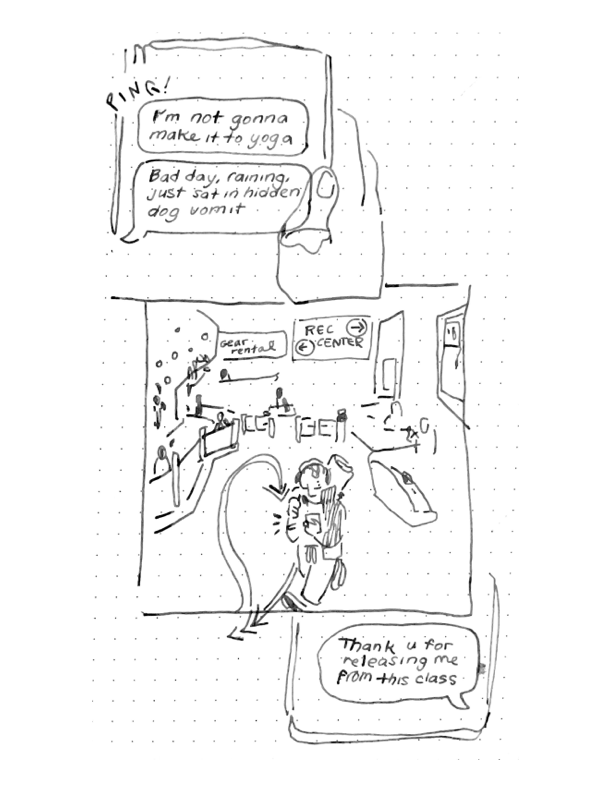 PING!
I'm not gonna
make it to yoga
Bad day, raining,
just sat in hidden
dog vomit
Gear
rental
REC
CENTER
Thank u for
releasing me
from this class